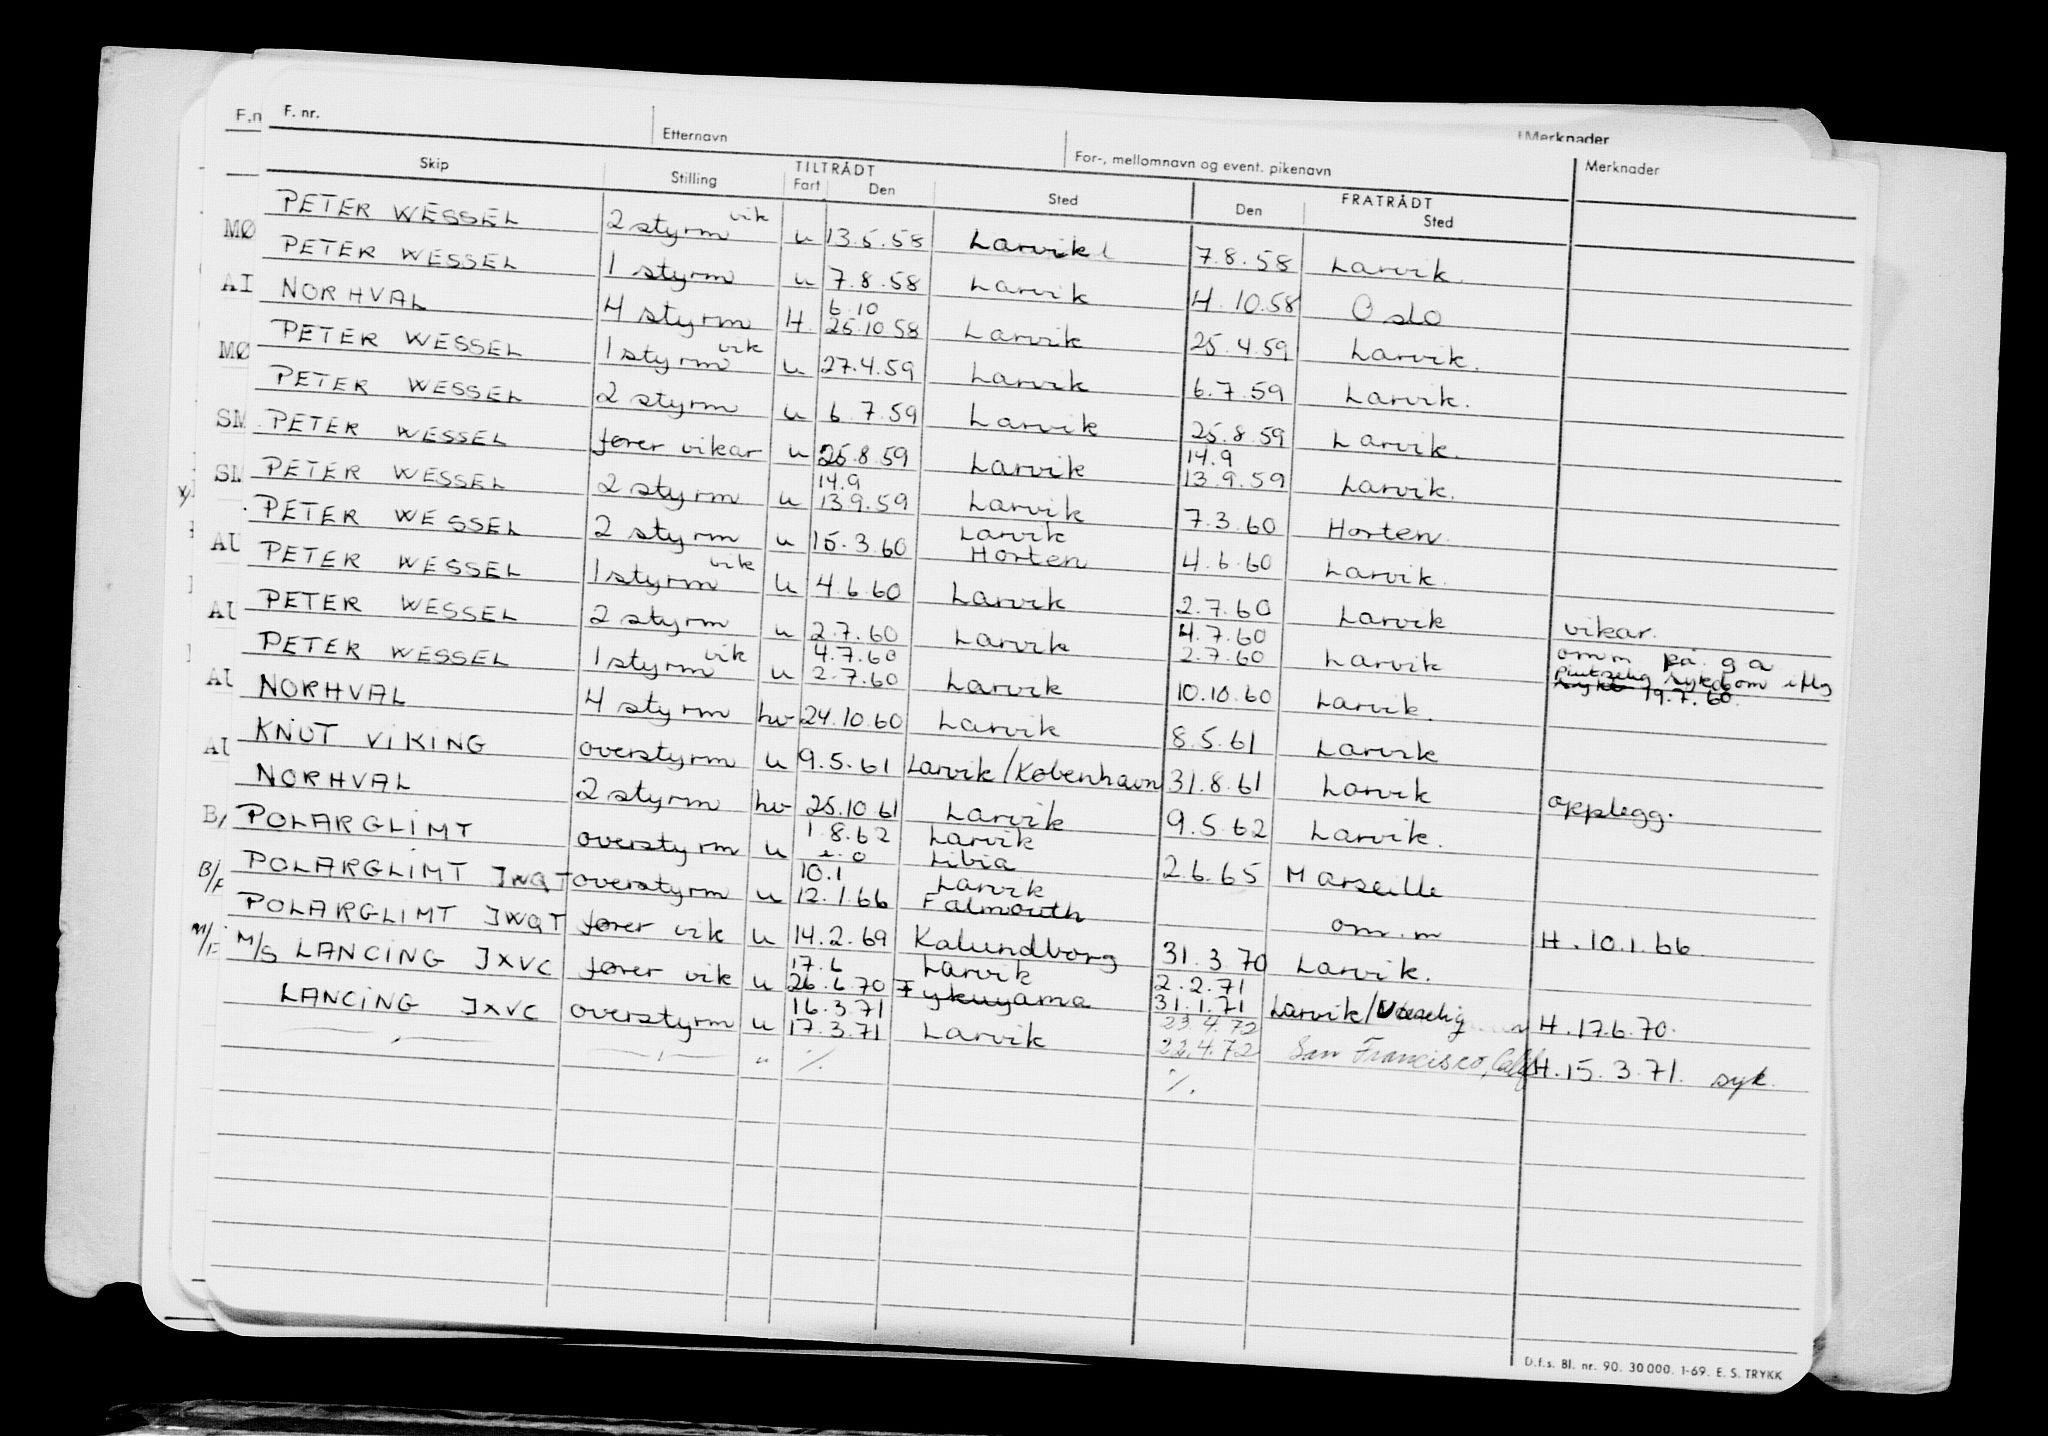 F. nr. Etternavn For-, mellomnavn og event. pikenavn Merknader
Skip Stilling TILTRÅDT Fart Den Sted FRATRÅDT Den Sted Merknader
PETER WESSEL 2 styrm vik u 13.5.58 Larvik 7.8.58 Larvik.
PETER WESSEL 1 styrm u 7.8.58 Larvik 4.10.58 Oslo
NORHVAL 4 styrm H. 6.10 25.10.58 Larvik 25.4.59 Larvik.
PETER WESSEL 1 styrm vik u 27.4.59 Larvik 6.7.59 Larvik.
PETER WESSEL 2 styrm u 6.7.59 Larvik 25.8.59 Larvik.
PETER WESSEL fører vikar u 25.8.59 Larvik 14.9 13.9.59 Larvik.
PETER WESSEL 2 styrm u 14.9 13.9.59 Larvik 7.3.60 Horten.
PETER WESSEL 2 styrm u 15.3.60 Larvik Horten 4.6.60 Larvik.
PETER WESSEL 1 styrm vik u 4.6.60 Larvik 2.7.60 Larvik vikar.
PETER WESSEL 2 styrm u 2.7.60 Larvik 4.7.60 2.7.60 Larvik omm på. g a
PETER WESSEL 1 styrm vik u 4.7.60 2.7.60 Larvik 10.10.60 Larvik. sykdom iflg 19.7.60.
NORHVAL 4 styrm hv 24.10.60 Larvik 8.5.61 Larvik
KNUT VIKING overstyrm u 9.5.61 Larvik/København 31.8.61 Larvik opplegg.
NORHVAL 2 styrm hv 25.10.61 Larvik 9.5.62 Larvik.
POLARGLIMT overstyrm u 1.8.62 Larvik Libia 2.6.65 Marseille
POLARGLIMT JWQT overstyrm u 10.1 12.1.66 Larvik Falmouth om.m H.10.1.66.
POLARGLIMT JWQT fører vik u 14.2.69 Kalundborg 31.3.70 Larvik.
M/S LANCING JXVC fører vik u 17.6 26.6.70 Larvik Fykuyama 2.2.71 31.1.71 Larvik/ H.17.6.70.
LANCING JXVC overstyrm u 16.3.71 17.3.71 Larvik 23.4.72 22.4.72 San Francisco, Calif H.15.3.71. syk.
D.f.s. Bl. nr. 90. 30000. 1-69. E. S. TRYKK